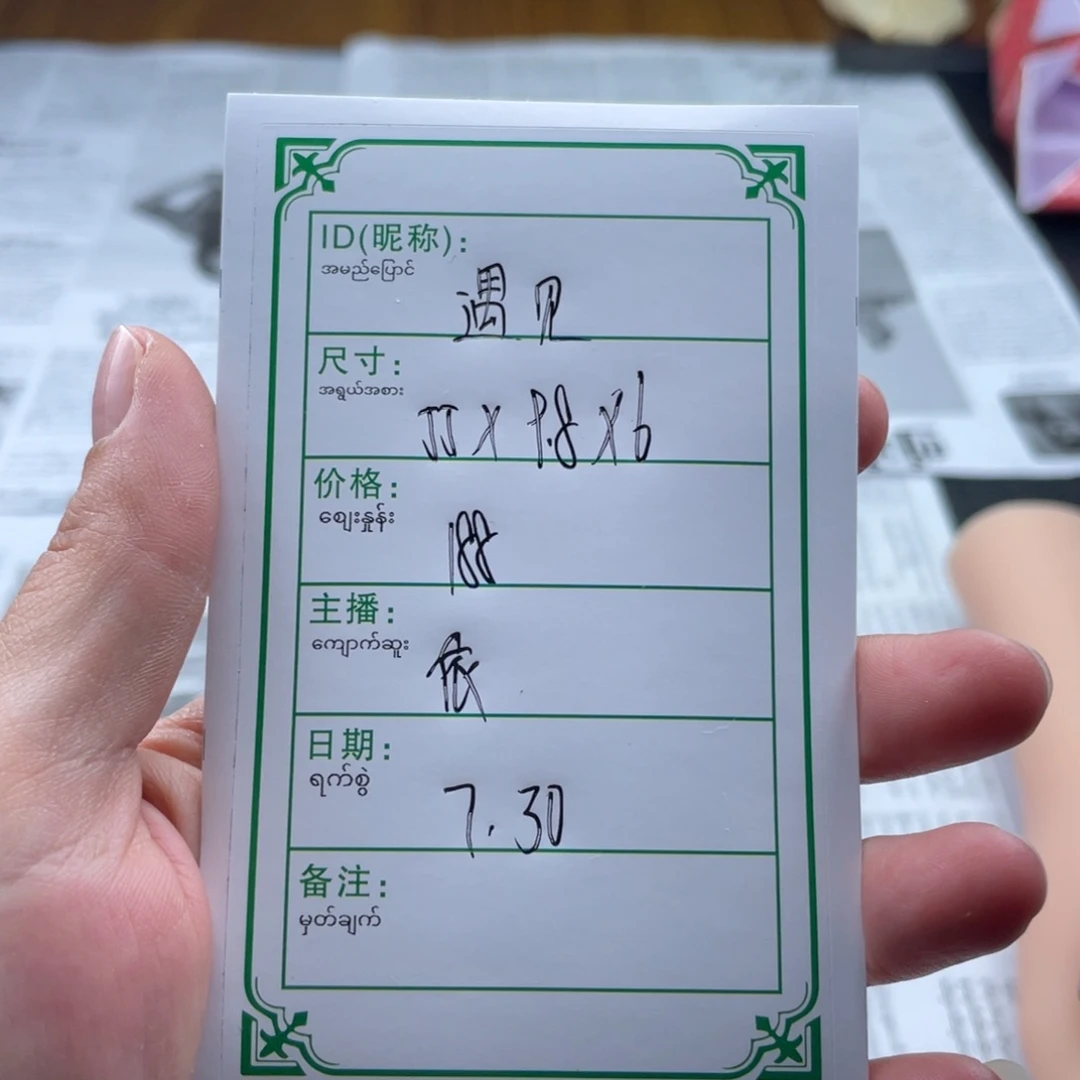 ID(昵称):
အမည်ပြောင်
遇见
尺寸:
အရွယ်အစား
55 X 9.8 X 6
价格:
ဈေးနှုန်း
188
主播:
ကျောက်ဆူး
依
日期:
ရက်စွဲ
7.30
备注:
မှတ်ချက်